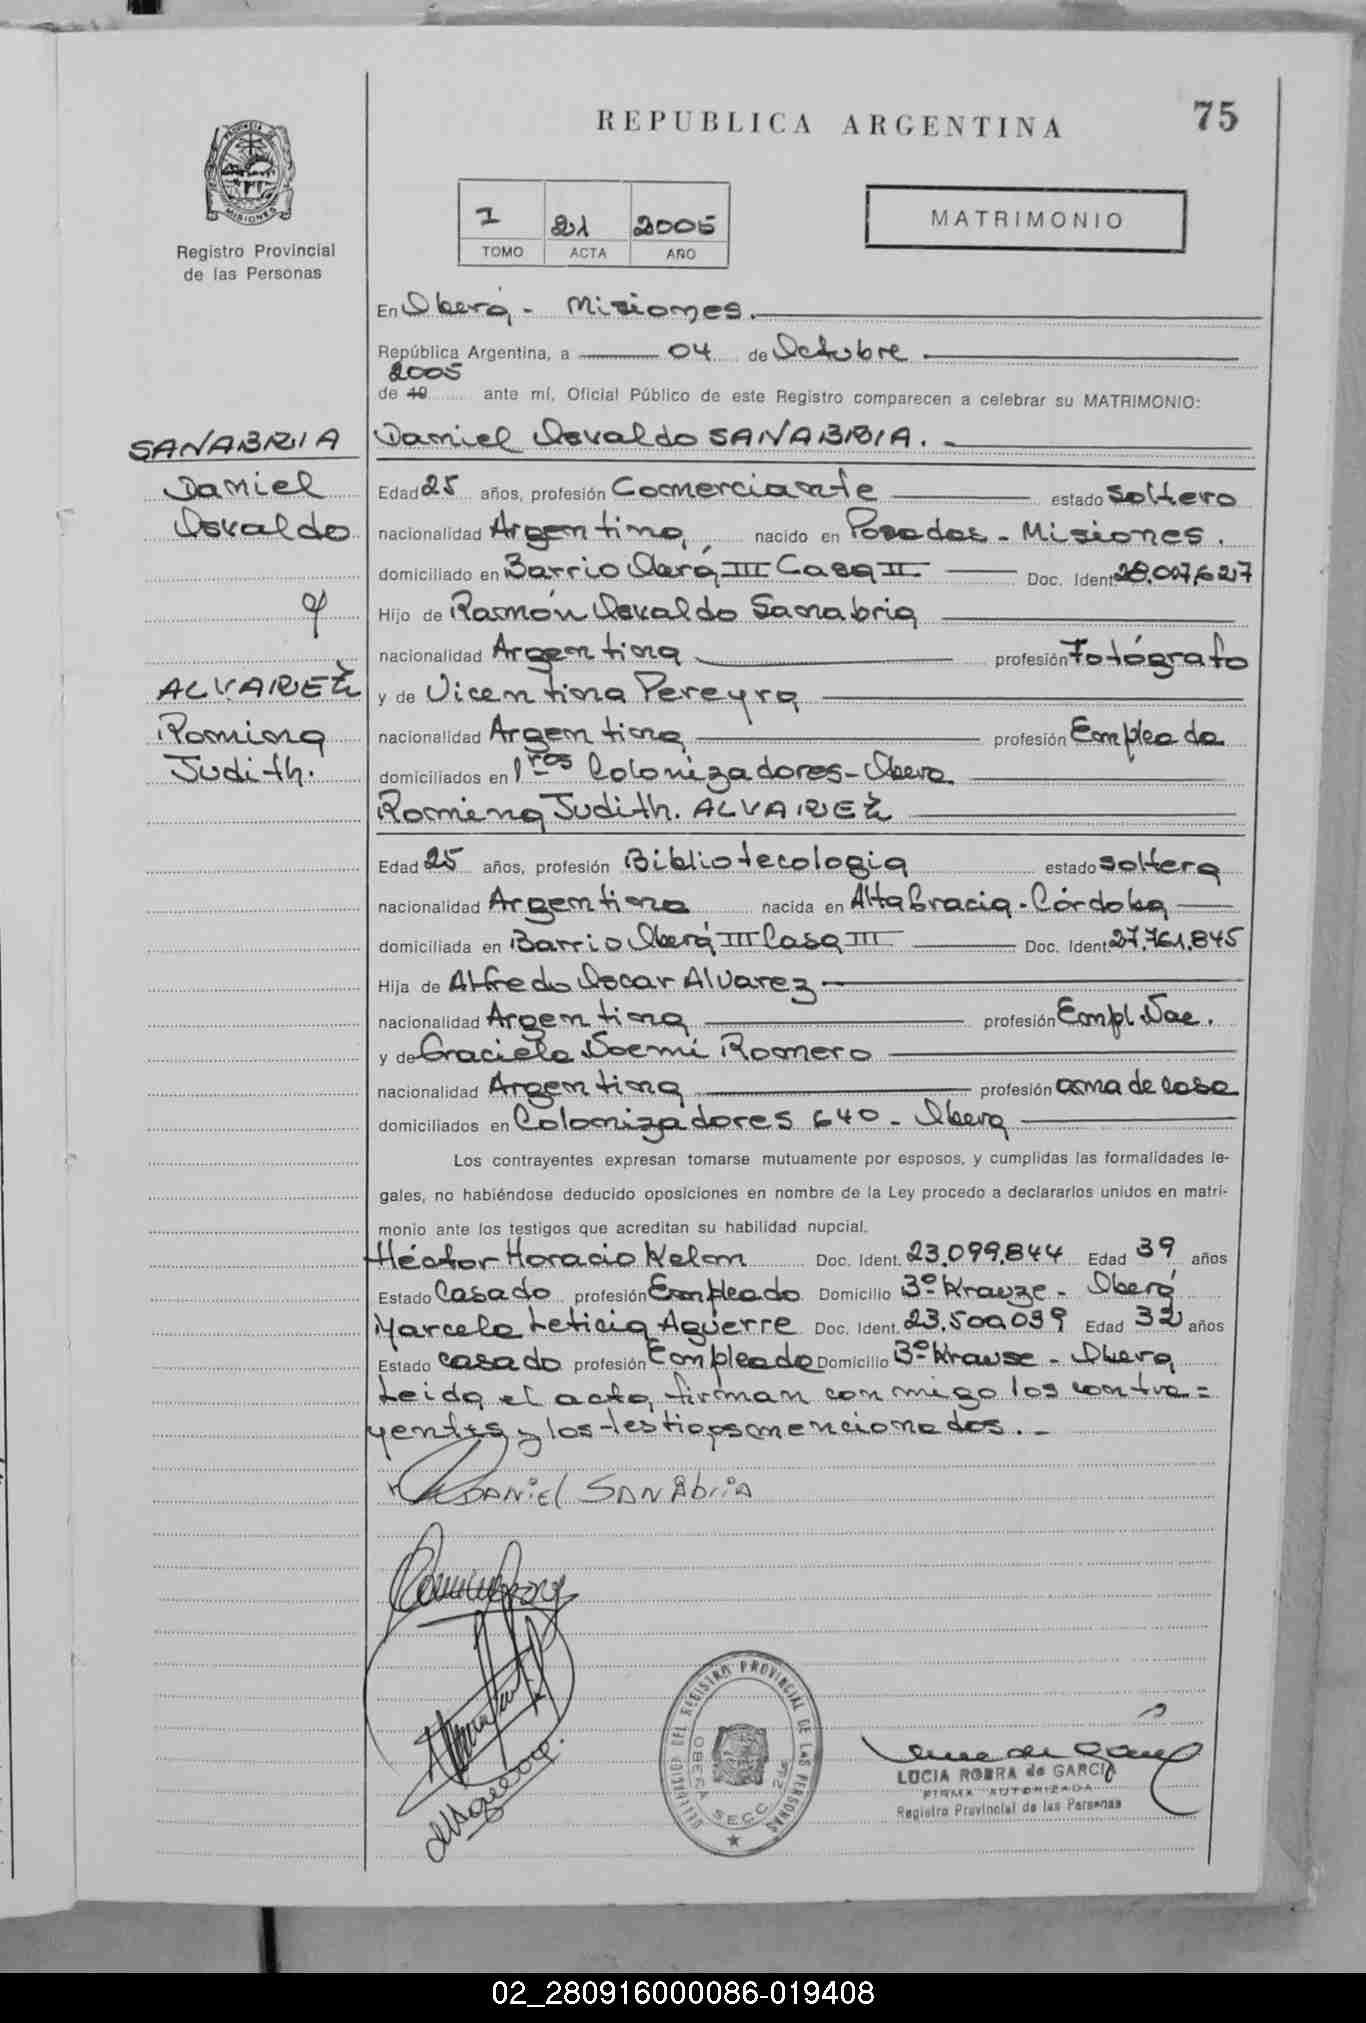 REPUBLICA ARGENTINA
75
PROVINCIA DE
MISIONES
Registro Provincial
de las Personas
1 21 2005
TOMO ACTA AÑO
MATRIMONIO
En Oberá - Misiones.
República Argentina, a 04 de Octubre
2005
de 19 ante mí, Oficial Público de este Registro comparecen a celebrar su MATRIMONIO:
SANABRIA
Daniel
Osvaldo
y
ALVAREZ
Romina
Judith.
Daniel Osvaldo SANABRIA. -
Edad 25 años, profesión Comerciante estado soltero
nacionalidad Argentina nacido en Posadas - Misiones.
domiciliado en Barrio Oberá III Casa II Doc. Ident. 28.007,627
Hijo de Ramón Osvaldo Sanabria
nacionalidad Argentina profesión Fotógrafo
y de Vicentina Pereyra
nacionalidad Argentina profesión Empleada
domiciliados en 1ros Colonizadores - Obera
Romina Judith. ALVAREZ
Edad 25 años, profesión Bibliotecologia estado soltera
nacionalidad Argentina nacida en Alta Gracia - Córdoba
domiciliada en Barrio Oberá III Casa III Doc. Ident. 27.761.845
Hija de Alfredo Oscar Alvarez
nacionalidad Argentina profesión Empl. Nac.
y de Graciela Noemi Romero
nacionalidad Argentina profesión ama de casa
domiciliados en Colonizadores 640 - Obera
Los contrayentes expresan tomarse mutuamente por esposos, y cumplidas las formalidades le-
gales, no habiéndose deducido oposiciones en nombre de la Ley procedo a declararlos unidos en matri-
monio ante los testigos que acreditan su habilidad nupcial.
Héctor Horacio Kelm Doc. Ident. 23.099.844 Edad 39 años
Estado Casado profesión Empleado Domicilio 3º Krauze - Oberá
Marcela Leticia Aguerre Doc. Ident. 23.500.039 Edad 32 años
Estado casado profesión Empleada Domicilio 3º Krause - Obera
Leida el acta, firman conmigo los contra=
yentes y los testigos mencionados. -
DANIEL SANAbriA
DELEGACION DEL REGISTRO PROVINCIAL DE LAS PERSONAS
OBERA SECC. 2da
LUCIA ROBRA de GARCIA
FIRMA AUTORIZADA
Registro Provincial de las Personas
02_280916000086-019408